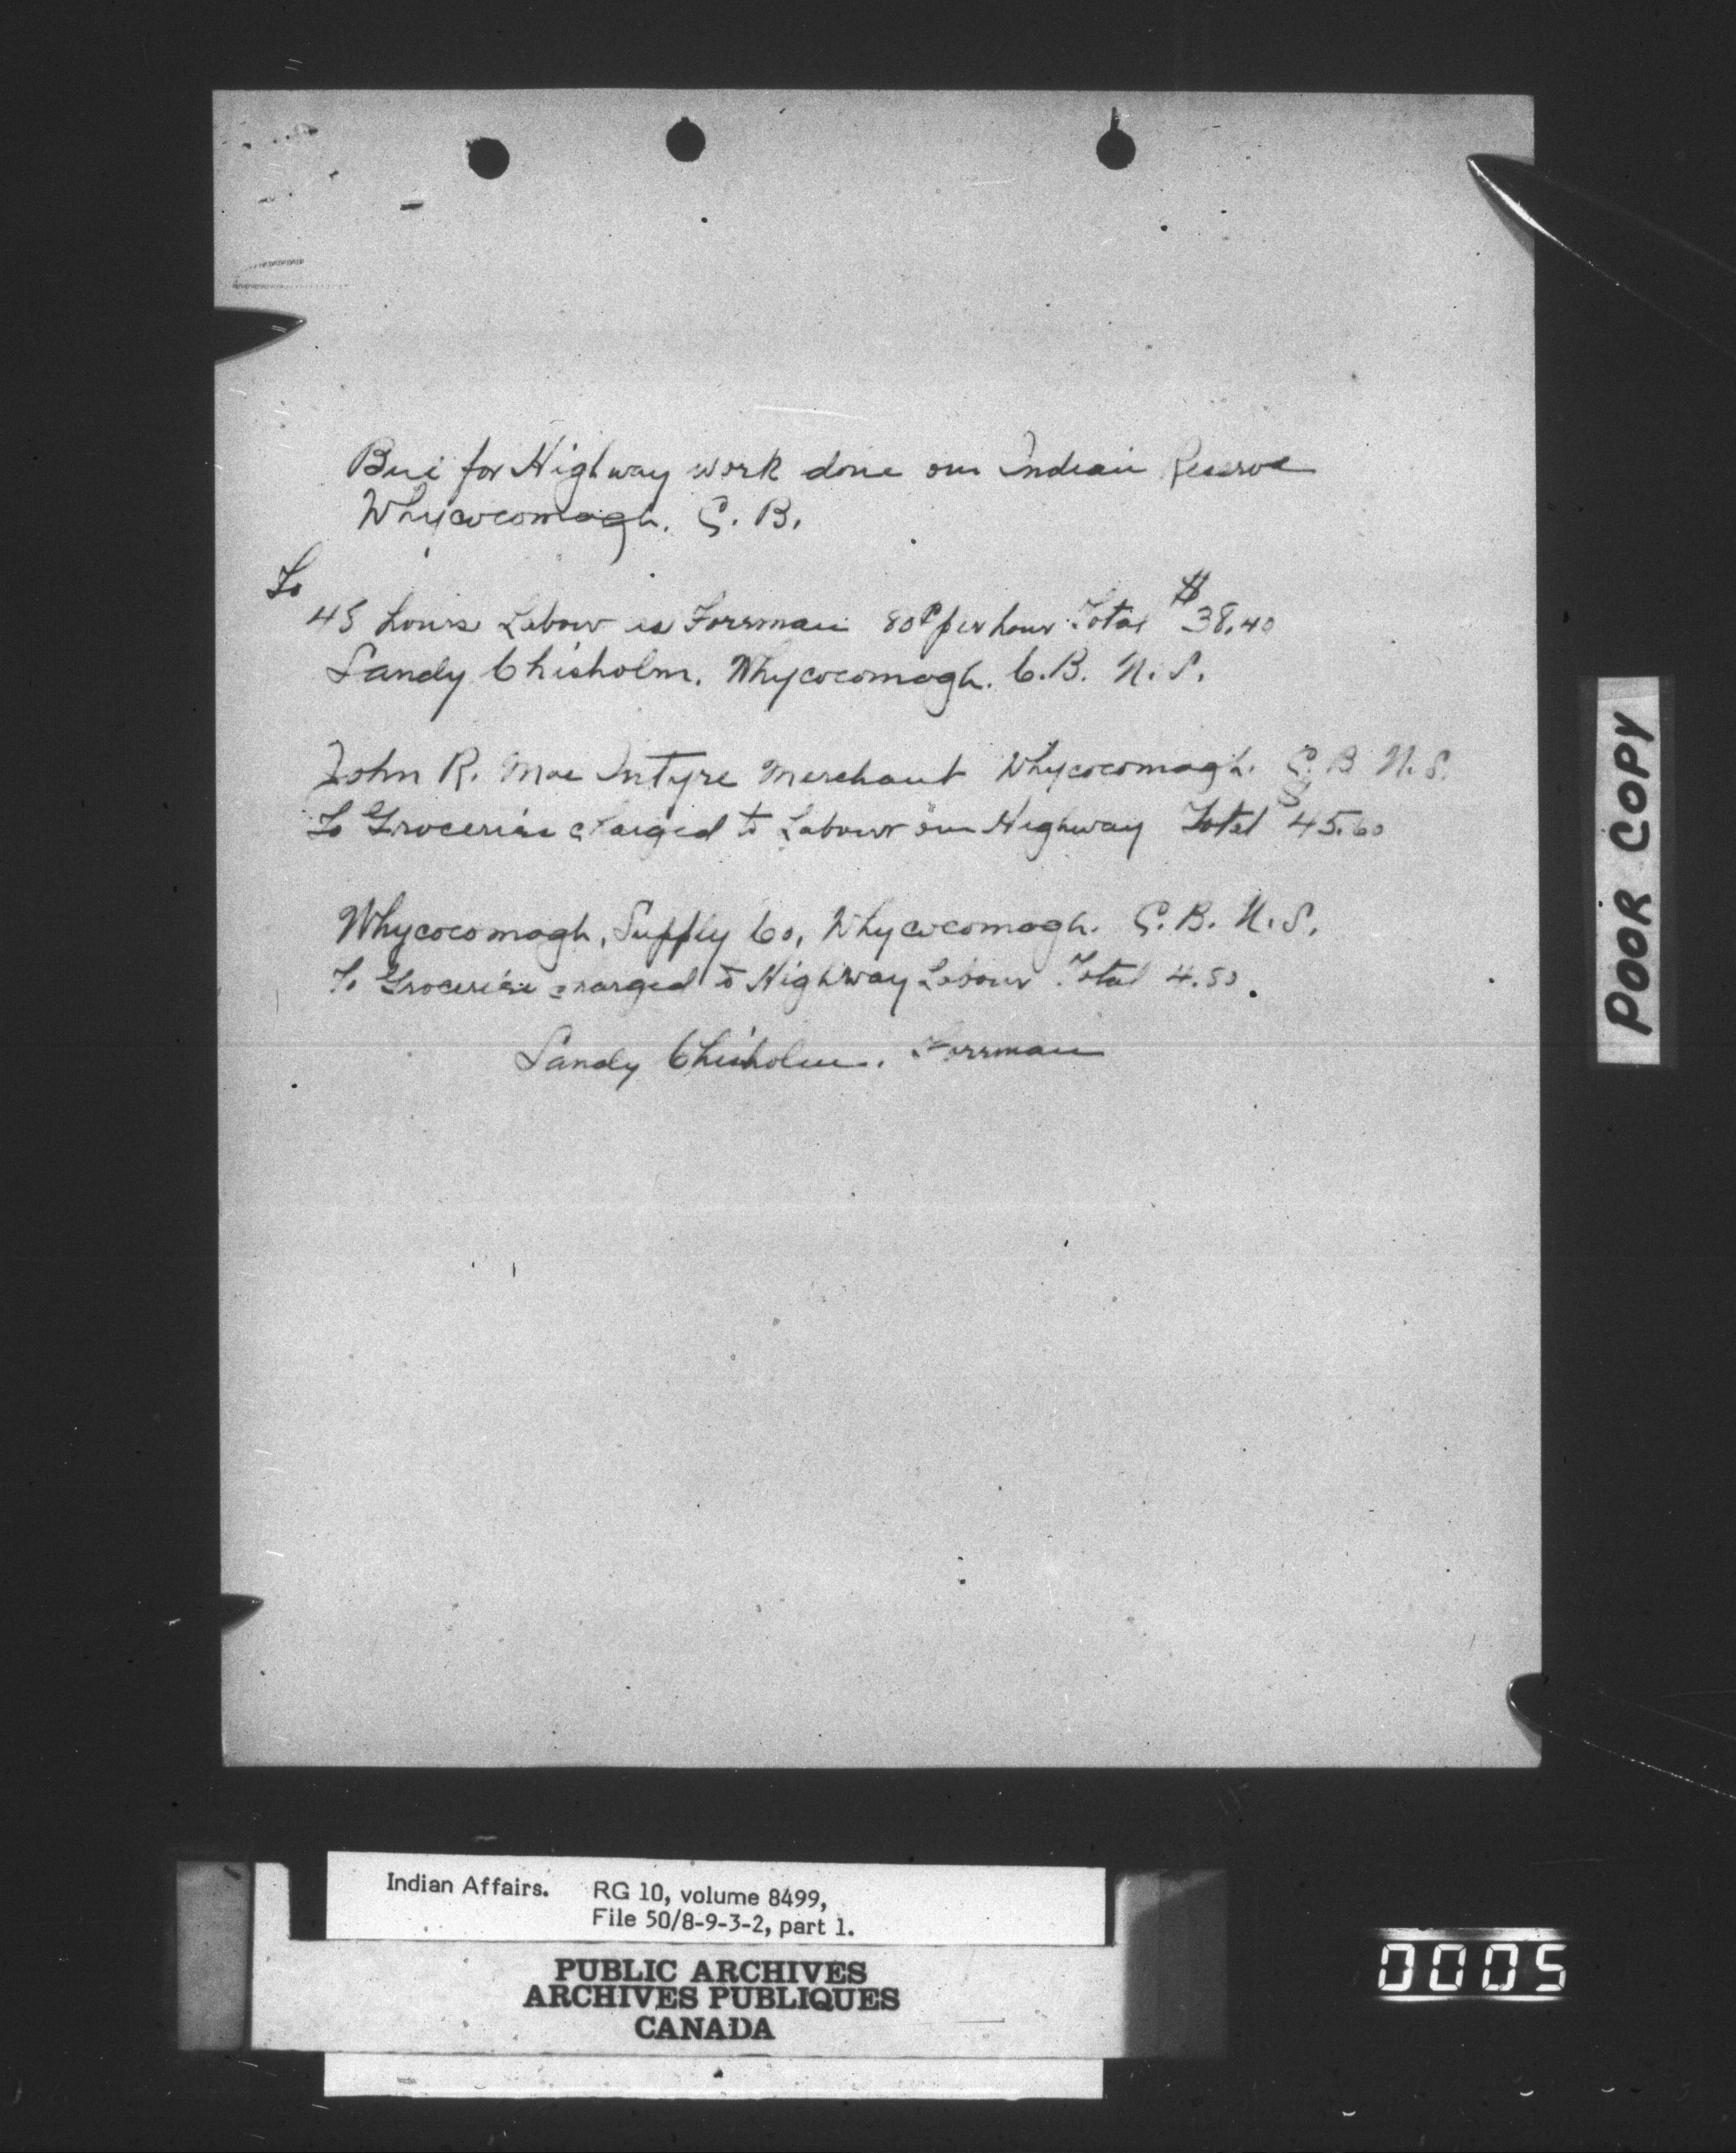 Bill for Highway work done on Indian Reserve
Whycocomagh. C. B.
To
48 hours Labour as Forrman 80¢ per hour Total $38.40
Sandy Chisholm. Whycocomagh. C.B. N.S.
John R. Mac Intyre Merchant Whycocomagh. C. B N.S.
To Groceries charged to Labour on Highway Total $45.60
Whycocomagh, Supply Co, Whycocomagh. C. B. N.S.
To Groceries charged to Highway Labour Total 4.50.
Sandy Chisholm. Forrman
POOR COPY
Indian Affairs. RG 10, volume 8499,
File 50/8-9-3-2, part 1.
PUBLIC ARCHIVES
ARCHIVES PUBLIQUES
CANADA
0005